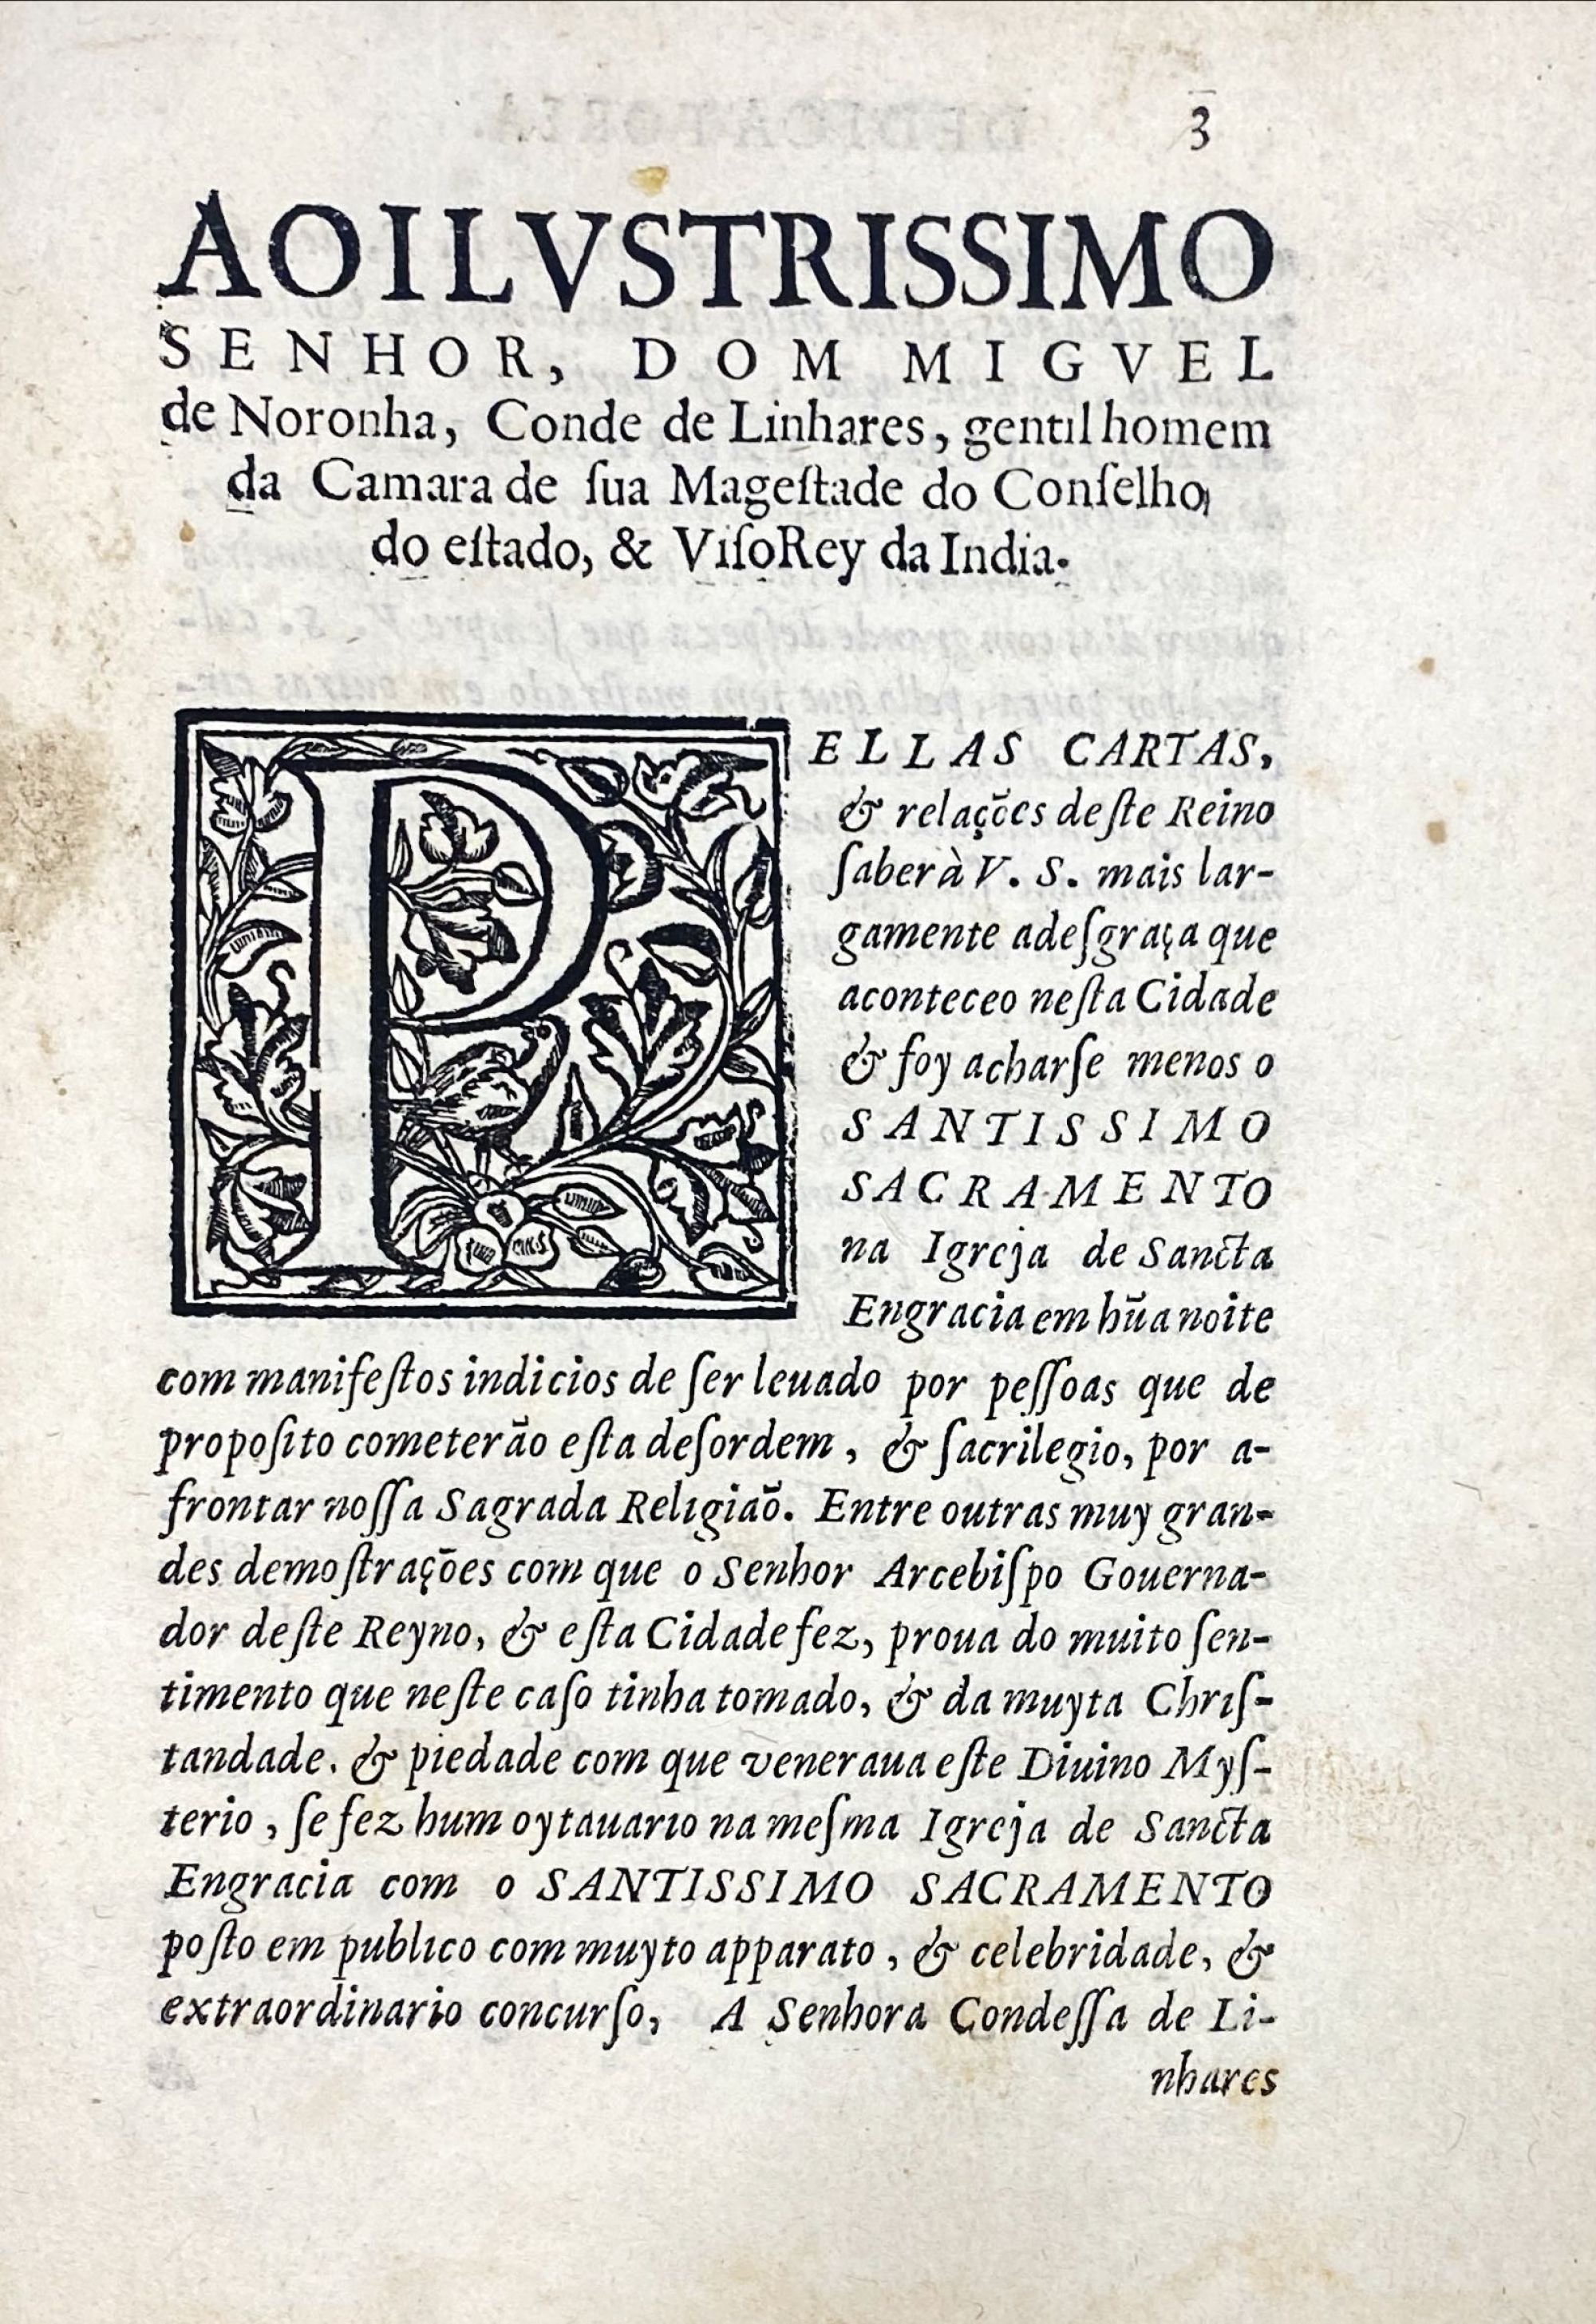 3
AOILVSTRISSIMO
SENHOR, DOM MIGVEL
de Noronha, Conde de Linhares, gentil homem
da Camara de ſua Mageſtade do Conſelho
do eſtado, & ViſoRey da India.
PELLAS CARTAS,
& relaçoēs deſte Reino
ſaberà V. S. mais lar-
gamente adeſgraça que
aconteceo neſta Cidade
& foy acharſe menos o
SANTISSIMO
SACRAMENTO
na Igreja de Sancta
Engracia em hūa noite
com manifeſtos indicios de ſer leuado por peſſoas que de
propoſito cometerão eſta deſordem, & ſacrilegio, por a-
frontar noſſa Sagrada Religiaō. Entre outras muy gran-
des demoſtraçōes com que o Senhor Arcebiſpo Gouerna-
dor deſte Reyno, & eſta Cidade fez, proua do muito ſen-
timento que neſte caſo tinha tomado, & da muyta Chriſ-
tandade. & piedade com que veneraua eſte Diuino Myſ-
terio, ſe fez hum oytauario na meſma Igreja de Sancta
Engracia com o SANTISSIMO SACRAMENTO
poſto em publico com muyto apparato, & celebridade, &
extraordinario concurſo, A Senhora Condeſſa de Li-
nhares